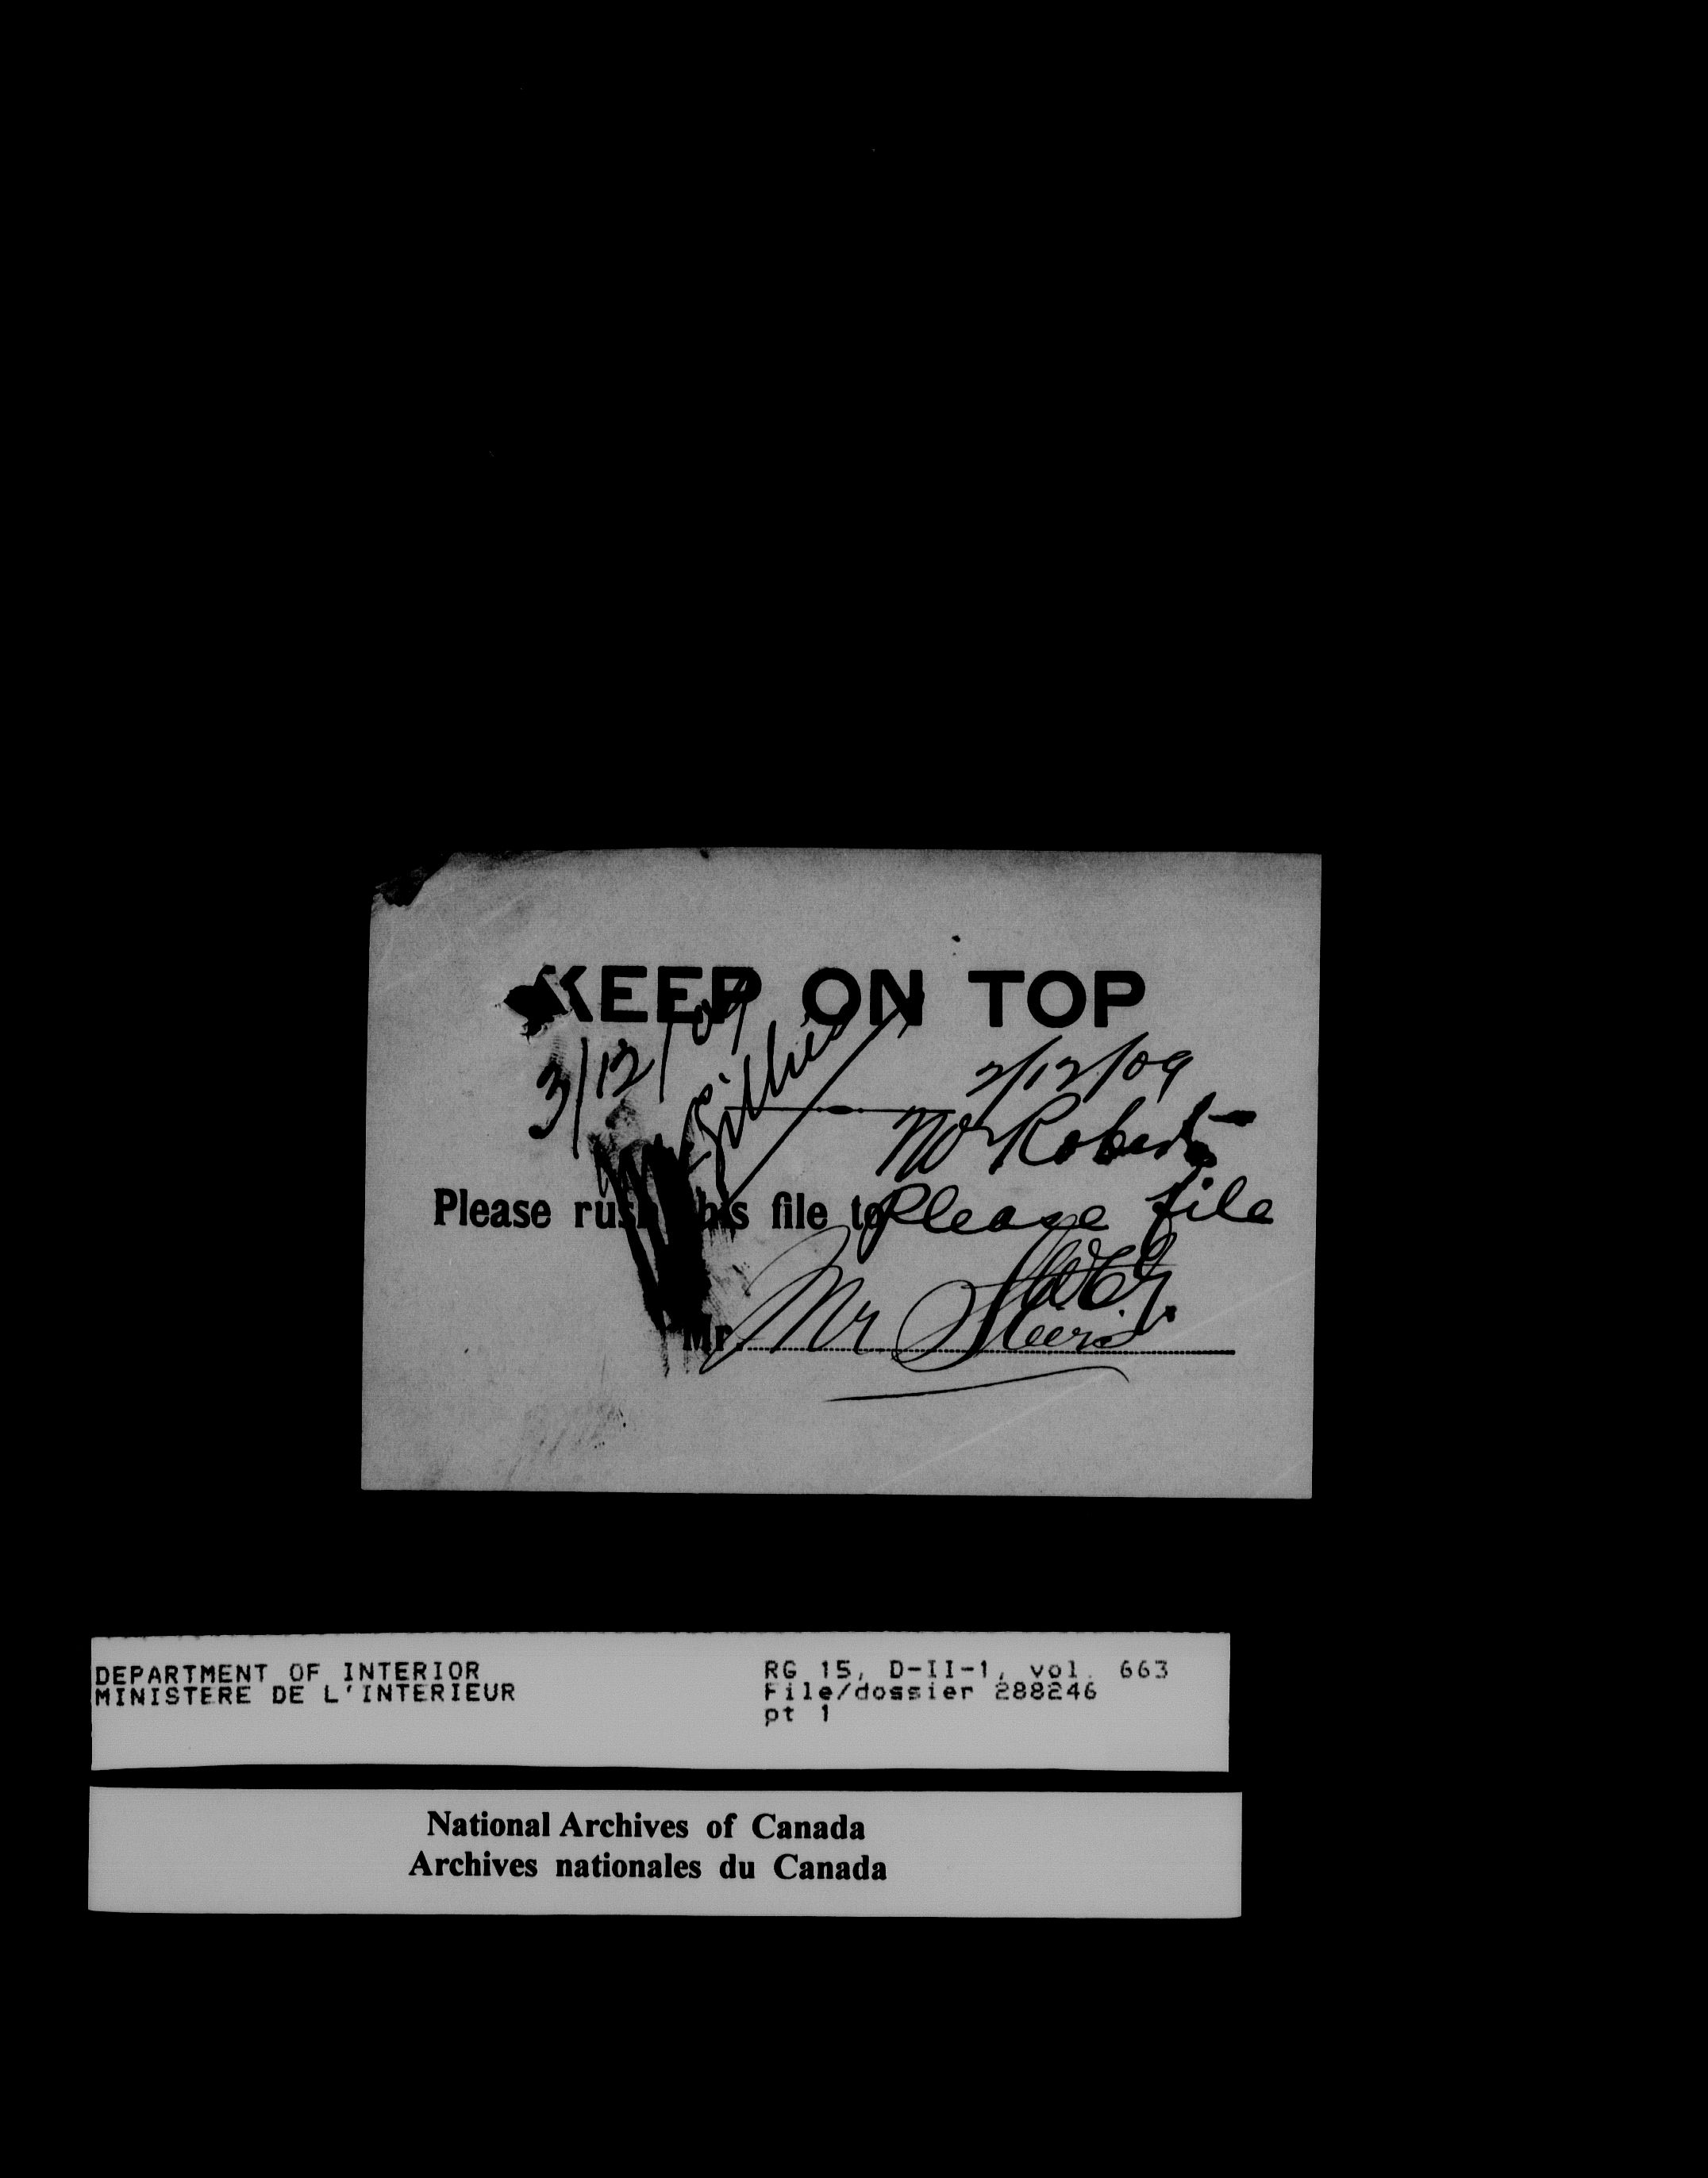 KEEP ON TOP
3/12/09
Gillies
2/12/09
Mr Roberts
Please rush this file to
Please file
Mr. Mr
DEPARTMENT OF INTERIOR
MINISTERE DE L'INTERIEUR
RG 15, D-II-1, vol. 663
File/dossier 288246
pt 1
National Archives of Canada
Archives nationales du Canada